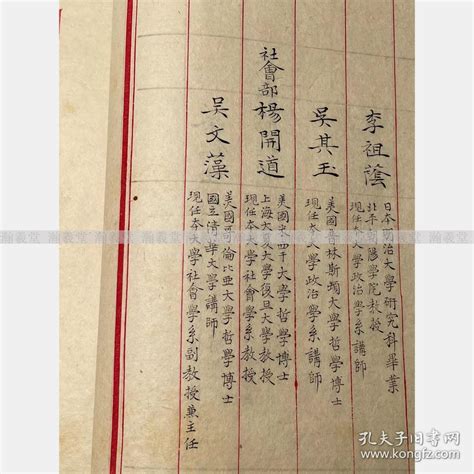 李祖蔭
日本明治大學研究科畢業
北平陽學院教授
現任本大學政治學系講師
吳其玉
美國普林斯頓大學哲學博士
現任本大學政治學系講師
社會部
楊開道
美國西干大學哲學博士
上海大夏大學復旦大學教授
現任本大學社會學系教授
吳文藻
美國哥倫比亞大學哲學博士
國立清華大學講師
現任本大學社會學系副教授兼主任
孔夫子旧书网
www.kongfz.com